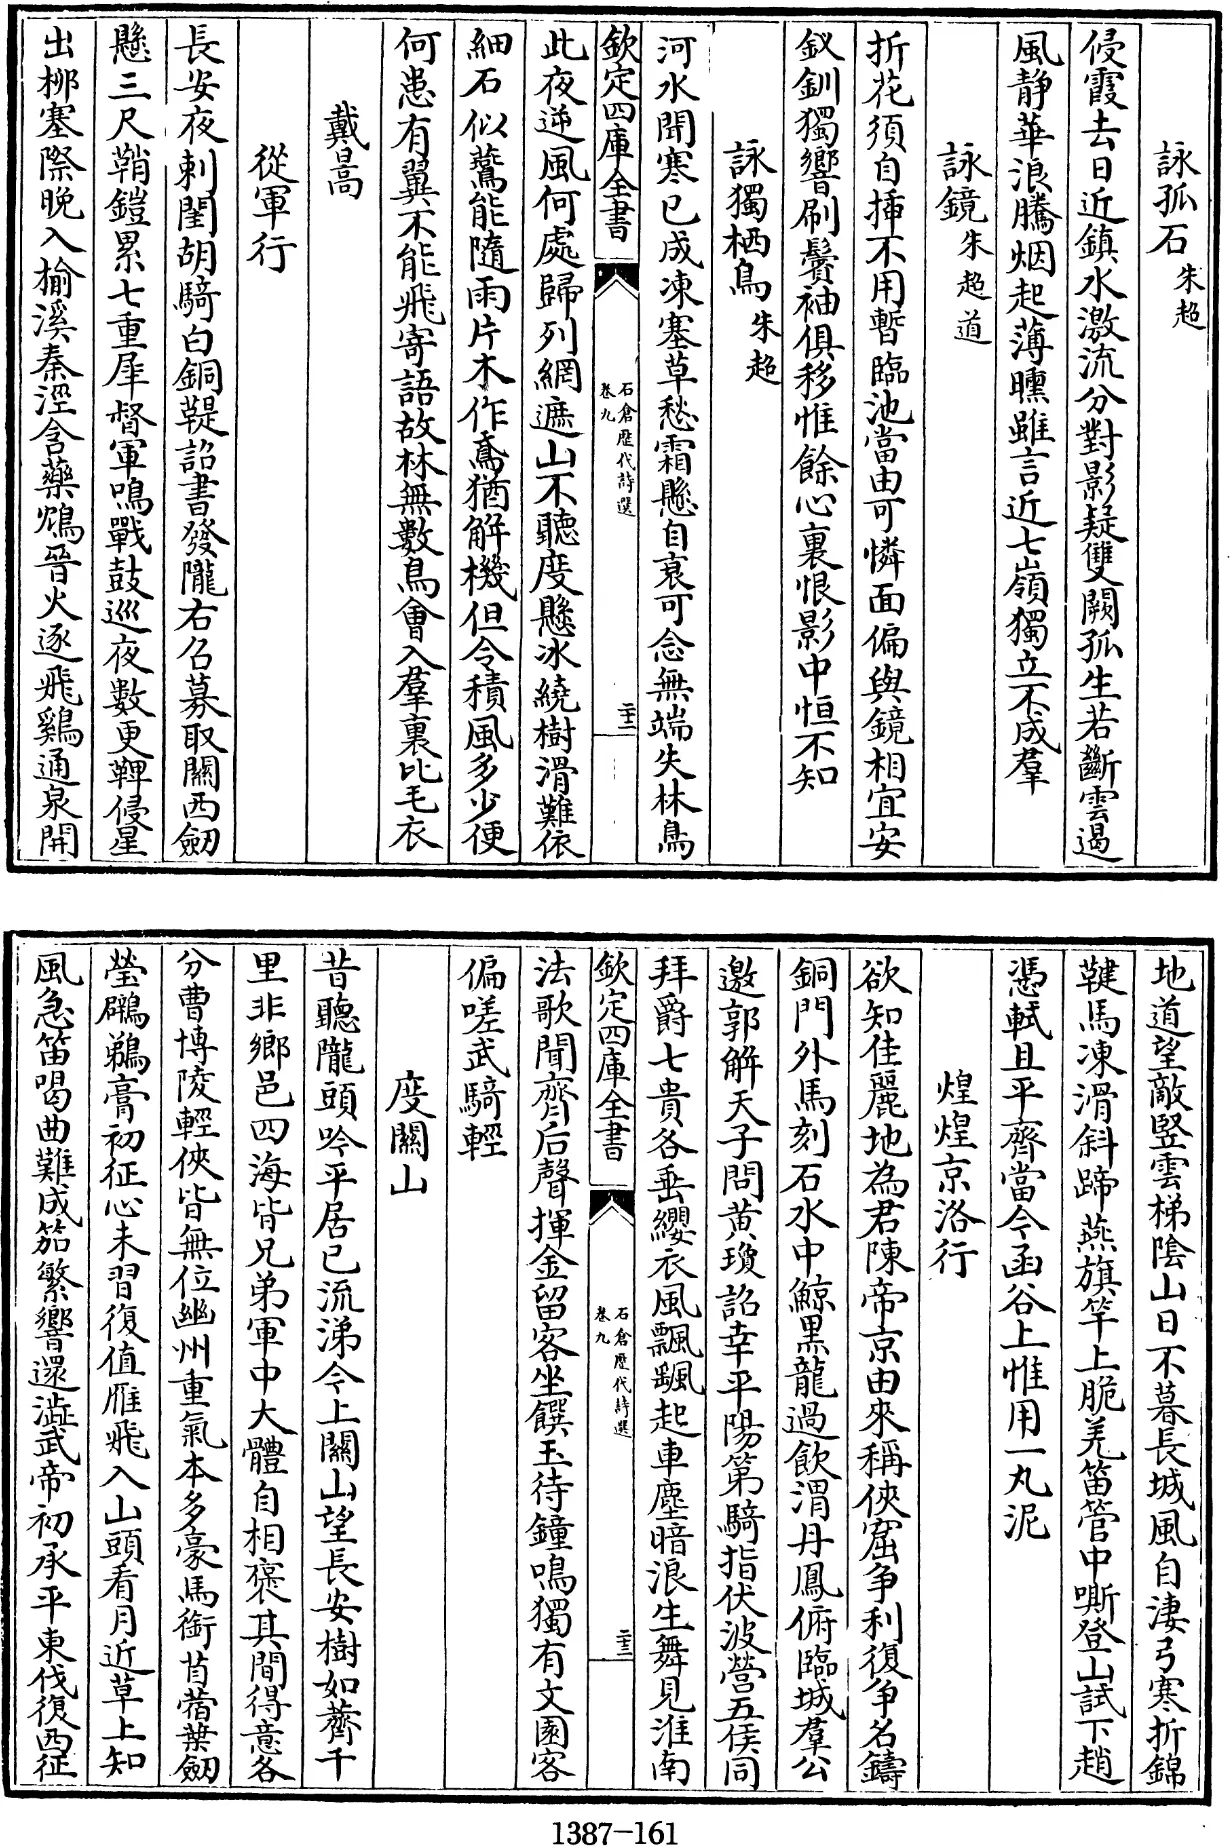 詠孤石朱超
侵霞去日近鎮水激流分對影疑雙闕孤生若斷雲遏
風静華浪騰烟起薄曛雖言近七嶺獨立不成羣
詠鏡朱超道
折花須自插不用暫臨池當由可憐面偏與鏡相宜安
釵釧獨響刷鬢袖俱移惟餘心裏恨影中恒不知
詠獨栖鳥朱超
河水聞寒已成凍塞草愁霜懸自衰可念無端失林鳥
欽定四庫全書
石倉歷代詩選
卷九
二十二
此夜逆風何處歸列網遮山不聽度懸冰繞樹滑難依
細石似鷰能隨雨片木作鳶猶解機但令積風多少便
何患有翼不能飛寄語故林無數鳥會入羣裏比毛衣
戴暠
從軍行
長安夜刺閨胡騎白銅鞮詔書發隴右召募取關西劒
懸三尺鞘鎧累七重犀督軍鳴戰鼓巡夜數更鞞侵星
出栁塞際晚入榆溪秦涇含藥鴆晉火逐飛鷄通泉開
地道望敵竪雲梯陰山日不暮長城風自淒弓寒折錦
鞬馬凍滑斜蹄燕旗竿上脆羌笛管中嘶登山試下趙
憑軾且平齊當令函谷上惟用一丸泥
煌煌京洛行
欲知佳麗地為君陳帝京由來稱俠窟争利復争名鑄
銅門外馬刻石水中鯨黒龍過飲渭丹鳳俯臨城羣公
邀郭解天子問黄瓊詔幸平陽第騎指伏波營五侯同
拜爵七貴各垂纓衣風飄飄起車塵暗浪生舞見淮南
欽定四庫全書
石倉歷代詩選
卷九
二十三
法歌聞齊后聲揮金留客坐饌玉待鐘鳴獨有文園客
偏嗟武騎輕
度關山
昔聽隴頭吟平居已流涕今上關山望長安樹如薺千
里非鄉邑四海皆兄弟軍中大體自相褒其間得意各
分曹博陵輕俠皆無位幽州重氣本多豪馬銜苜蓿葉劒
瑩鸊鵜膏初征心未習復值雁飛入山頭看月近草上知
風急笛喝曲難成笳繁響還澁武帝初承平東伐復西征
1387-161